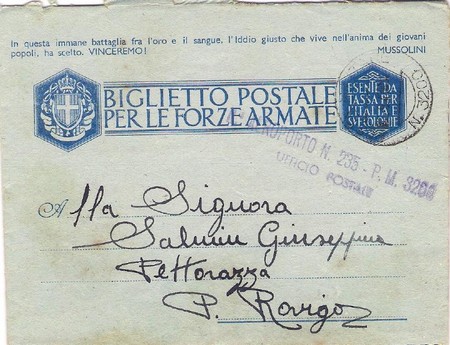 In questa immane battaglia fra l'oro e il sangue, l'Iddio giusto che vive nell'anima dei giovani
popoli, ha scelto. VINCEREMO!
MUSSOLINI
BIGLIETTO POSTALE
PER LE FORZE ARMATE
ESENTE DA
TASSA PER
L'ITALIA E
SVE COLONIE
N. 3200
AEROPORTO N. 235 - P. M. 3200
UFFICIO POSTALE
Alla Signora
Salmin Giuseppina
Pettorazza
P. Rovigo